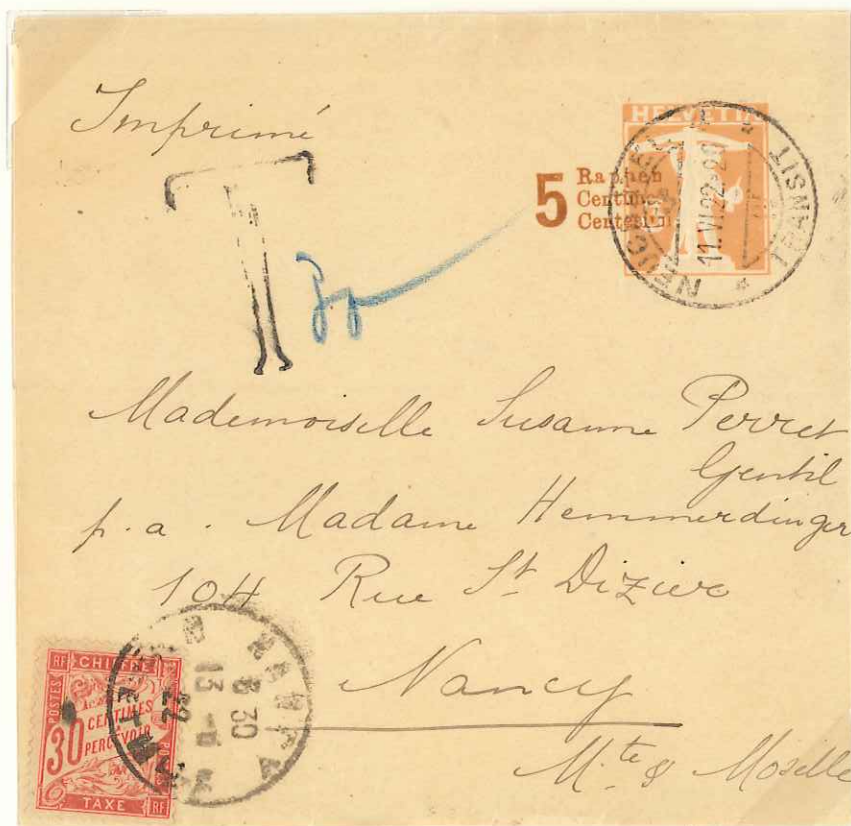 Imprimé
HELVETIA
5 Rappen
Centimes
Centesimi
NEUCHATEL
TRANSIT
11.VI.22
T
Mademoiselle Susanne Perret
Gentil
p. a. Madame Hemmerdinger
104 Rue St Dizier
Nancy
Mte & Moselle
NANCY
8 30
13 - 6
22
RF CHIFFRE RF
POSTES
A
30 CENTIMES
PERCEVOIR
TAXE RF